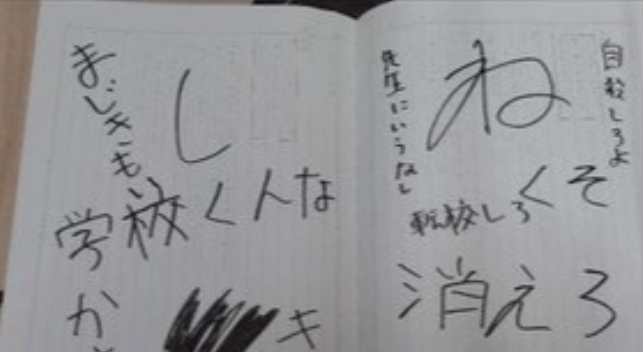 まじきもい
し
学校くんな
か
キ
自殺しろよ
ね
先生にいうなし
くそ
転校しろ
消えろ